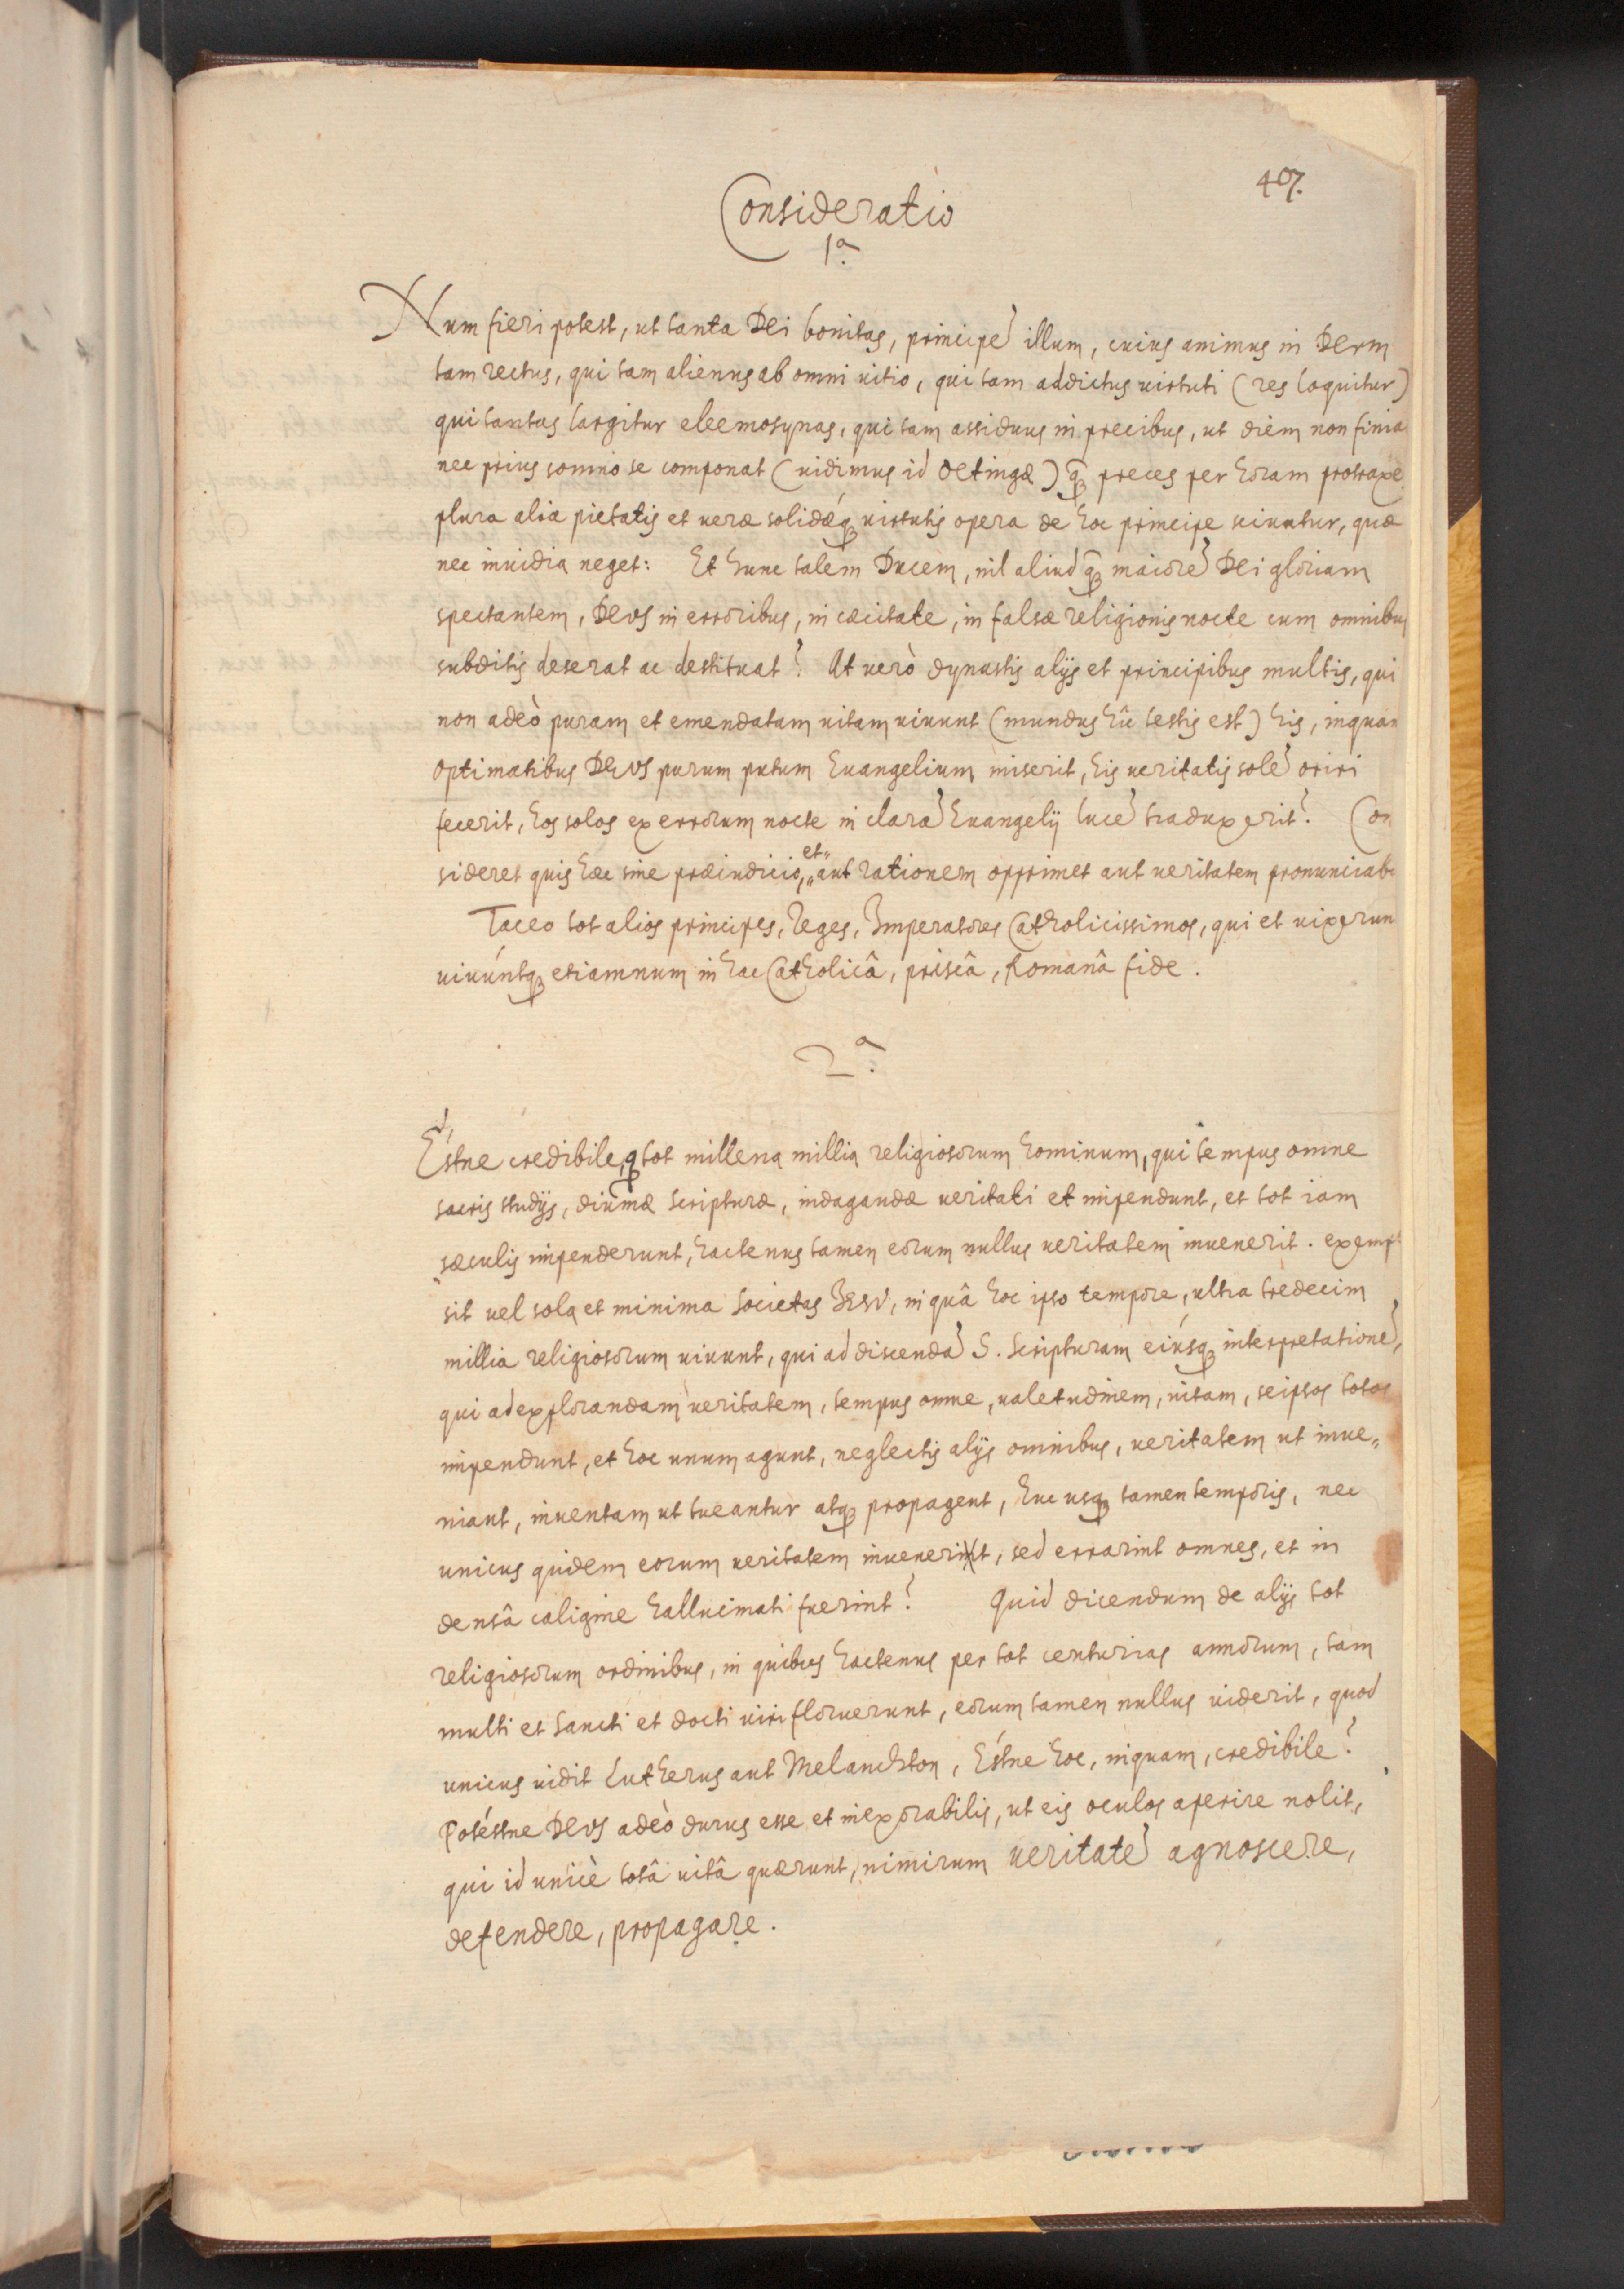 407.
Consideratio
1.ª
Num fieri potest, ut tanta DEi bonitas, principẽ illum, cuius animus in DEum
tam rectus, qui tam alienus ab omni uitio, qui tam addictus uirtuti (res loquitur)
qui tantas largitur eleemosynas, qui tam assiduus in precibus, ut diem non finia
nec prius somno se componat (uidimus id Oetingæ) q̃ preces per horam protraxe
plura alia pietatis et ueræ solidǽq; uirtutis opera de hoc principe sciuntur, quæ
nec inuidia neget: Et hunc talem Ducem, nil aliud q̃ maiorẽ DEi gloriam
spectantem, DEVS in erroribus, in cæcitate, in falsæ religionis nocte cum omnibus
subditis deserat ac destituat? At uerò dynastis alijs et principibus multis, qui
non adeò puram et emendatam uitam uiuunt (mundus hîc testis est) his, inquam
optimatibus DEVS purum putum Euangelium miserit, his ueritatis solẽ oriri
fecerit, hos solos ex errorum nocte in clarã Euangelij lucẽ traduxerit? Con
sideret quis hæc sine præiudicio, et aut rationem opprimet aut ueritatem pronunciab
Taceo tot alios principes, Reges, Imperatores Catholicissimos, qui et uixerun
uiuúntq; etiamnum in hac Catholicâ, priscâ, Romanâ fide.
2.ª
Éstne credibile, q tot millena millia religiosorum hominum, qui tempus omne
sacris studijs, diuinæ scripturæ, indagandæ ueritati et impendunt, et tot iam
sæculis impenderunt, hactenus tamen eorum nullus ueritatem inuenerit. exempl
sit uel sola et minima Societas IESV, in quâ hoc ipso tempore, ultra tredecim
millia religiosorum uiuunt, qui ad discendã S. Scripturam eiúsq; interpretationẽ,
qui ad explorandam ueritatem, tempus omne, ualetudinem, uitam, seipsos totos
impendunt, et hoc unum agunt, neglectis alijs omnibus, ueritatem ut inue„
niant, inuentam ut tueantur atq; propagent, huc usq; tamen temporis, nec
unicus quidem eorum ueritatem inuenerit, sed errarint omnes, et in
densâ caligine hallucinati fuerint? Quid dicendum de alijs tot
religiosorum ordinibus, in quibus hactenus per tot centurias annorum, tam
multi et sancti et docti uiri floruerunt, eorum tamen nullus uiderit, quod
unicus uidit Lutherus aut Melanchton, Éstne hoc, inquam, credibile?
Potéstne DEVS adeò durus esse et inexorabilis, ut eis oculos aperire nolit,
qui id unicè totâ uitâ quærunt, nimirum ueritatẽ agnoscere,
defendere, propagare.